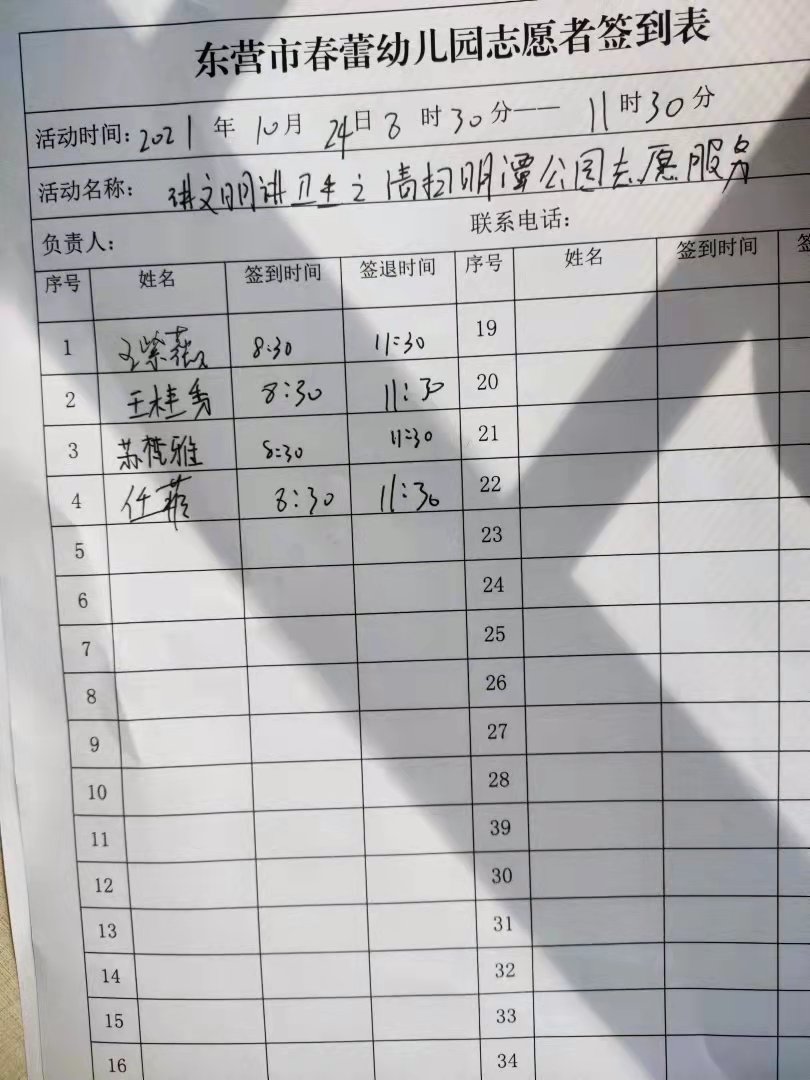 东营市春蕾幼儿园志愿者签到表
活动时间: 2021 年 10月 24日 8 时 30 分—— 11 时 30 分
活动名称: 讲文明讲卫生之清扫明潭公园志愿服务
负责人: 联系电话:
序号 姓名 签到时间 签退时间 序号 姓名 签到时间 签
1 王紫薇 8:30 11:30 19
2 王桂秀 8:30 11:30 20
3 苏梵雅 8:30 11:30 21
4 任菲 8:30 11:30 22
5 23
6 24
7 25
8 26
9 27
10 28
11 39
12 30
13 31
14 32
15 33
16 34